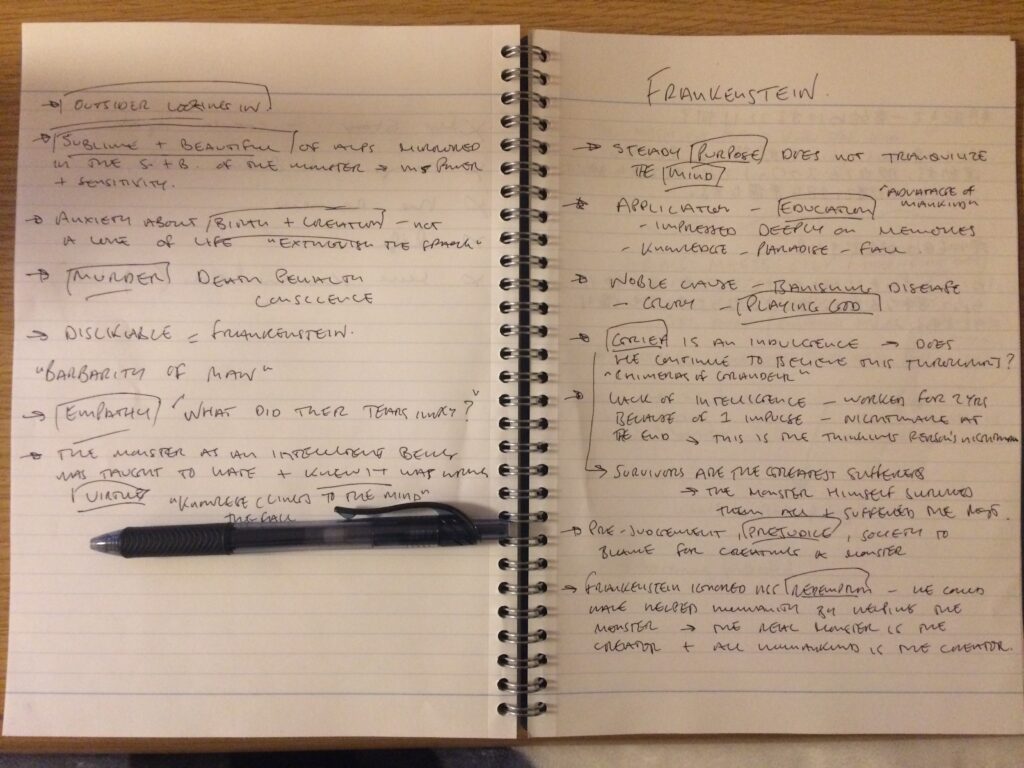 → OUTSIDER LOOKING IN
→ SUBLIME + BEAUTIFUL OF ALPS MIRRORED
IN THE S + B OF THE MONSTER → HIS POWER
+ SENSITIVITY.
→ ANXIETY ABOUT BIRTH + CREATION - NOT
A LOVE OF LIFE "EXTINGUISH THE SPARK"
→ MURDER DEATH PENALTY
CONSCIENCE
→ DISLIKABLE = FRANKENSTEIN.
"BARBARITY OF MAN"
→ EMPATHY "WHAT DID THEIR TEARS IMPLY?"
→ THE MONSTER AS AN INTELLIGENT BEING
WAS TAUGHT TO HATE + KNEW IT WAS WRONG
VIRTUE "KNOWLEGE CLINGS TO THE MIND"
THE FALL
FRANKENSTEIN.
→ STEADY PURPOSE DOES NOT TRANQUILIZE
THE MIND
"ADVANTAGE OF
MANKIND"
→ APPLICATION - EDUCATION
- IMPRESSED DEEPLY ON MEMORIES
- KNOWLEDGE - PARADISE - FALL
→ NOBLE CAUSE - BANISHING DISEASE
- GLORY - PLAYING GOD
→ GRIEF IS AN INDULGENCE → DOES
HE CONTINUE TO BELIEVE THIS THROUGHOUT?
"CHIMERAS OF GRANDEUR"
→ LACK OF INTELLIGENCE - WORKED FOR 2 YRS
BECAUSE OF 1 IMPULSE - NIGHTMARE AT
THE END → THIS IS THE THINKING PERSON'S NIGHTMARE
→ SURVIVORS ARE THE GREATEST SUFFERERS
→ THE MONSTER HIMSELF SURVIVED
THEM ALL + SUFFERED THE MOST.
→ PRE-JUDGEMENT, PREJUDICE, SOCIETY TO
BLAME FOR CREATING A MONSTER
→ FRANKENSTEIN IGNORED HIS REDEMPTION - HE COULD
HAVE HELPED HUMANITY BY HELPING THE
MONSTER → THE REAL MONSTER IS THE
CREATOR + ALL HUMANKIND IS THE CREATOR.